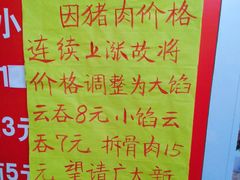 因猪肉价格
连续上涨故将
价格调整为大馅
云吞8元小馅云
吞7元 拆骨肉15
元 望请广大新
小
1
3元
5元